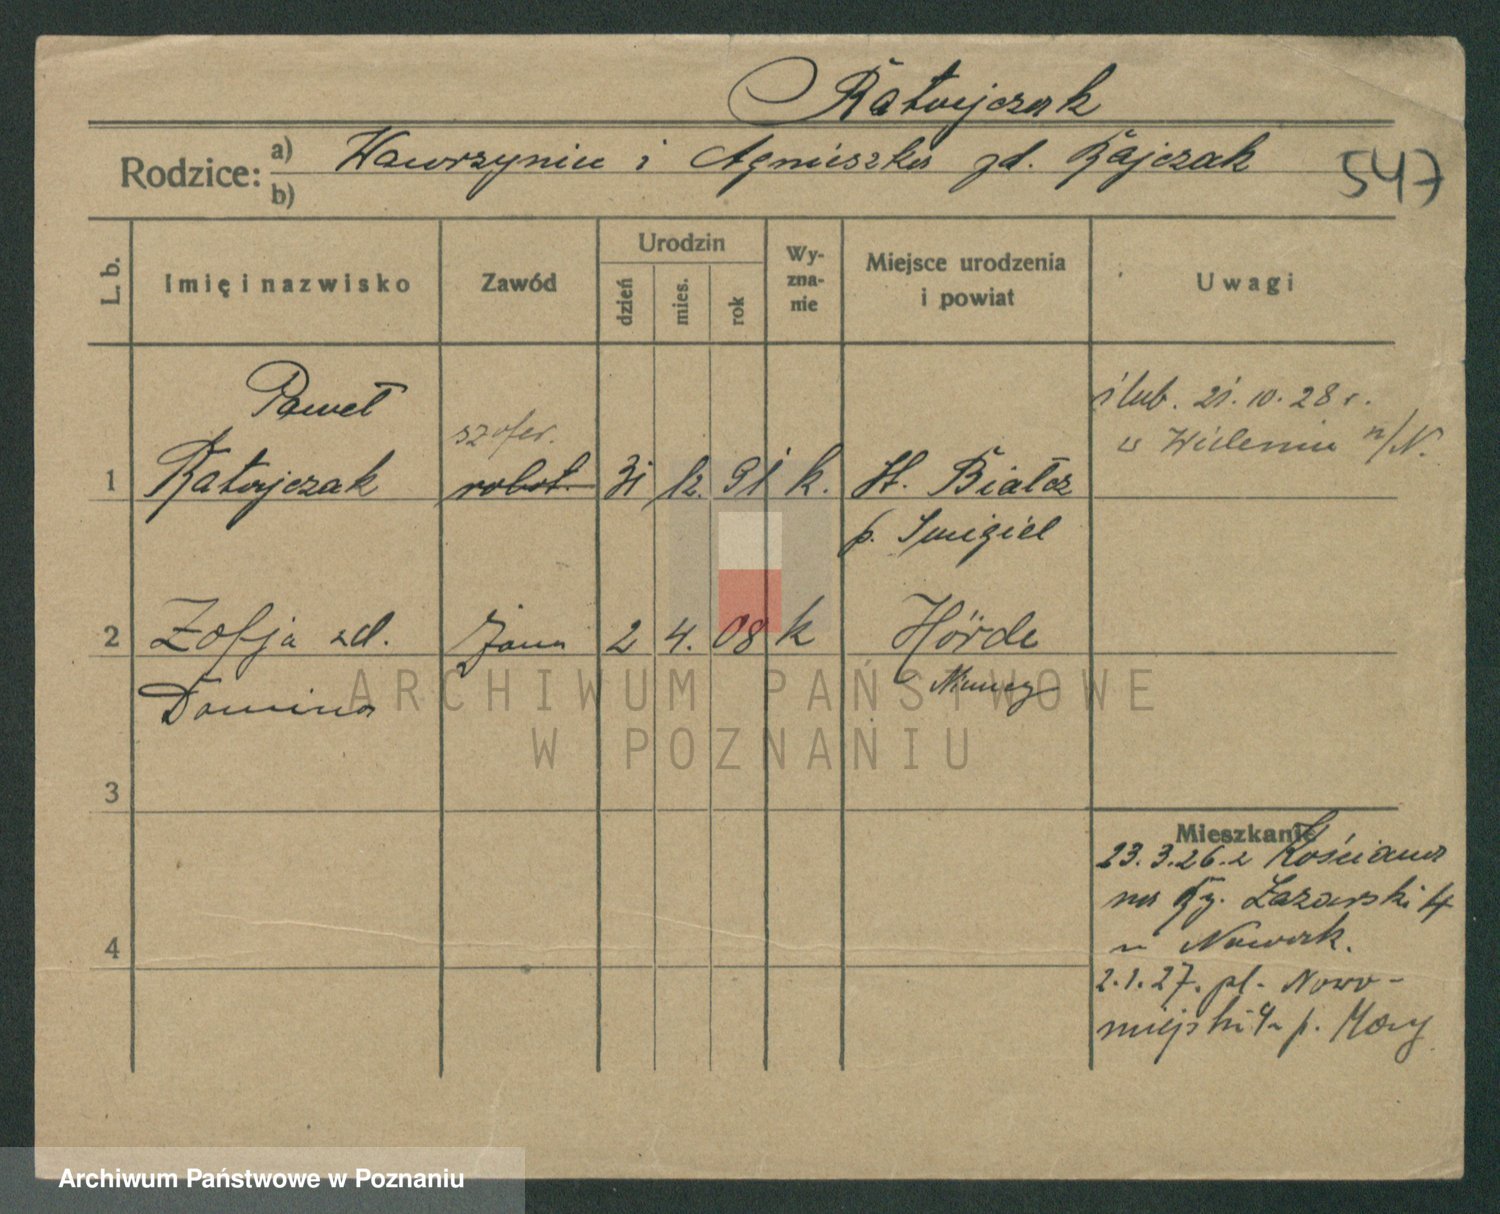 Ratajczak
Rodzice: a) Wawrzyniec i Agnieszka zd. Rajczak
b)
547
L. b.
Imię i nazwisko
Zawód
Urodzin
dzień
mies.
rok
Wy-
zna-
nie
Miejsce urodzenia
i powiat
Uwagi
Paweł
szofer.
1 Ratajczak robot. 31 12. 91 k. St. Białcz
p. Śmigiel
ślub. 21. 10. 28 r.
w Wieleniu n/N.
2 Zofja zd. żona 2 4. 08 k Hörde
Niemcy
3
4
Mieszkanie
23. 3. 26. z Kościana
na Ry. Łazarski 4
u Nowak.
2. 1. 27. pl. Nowo-
miejski p.
ARCHIWUM PAŃSTWOWE
W POZNANIU
Archiwum Państwowe w Poznaniu